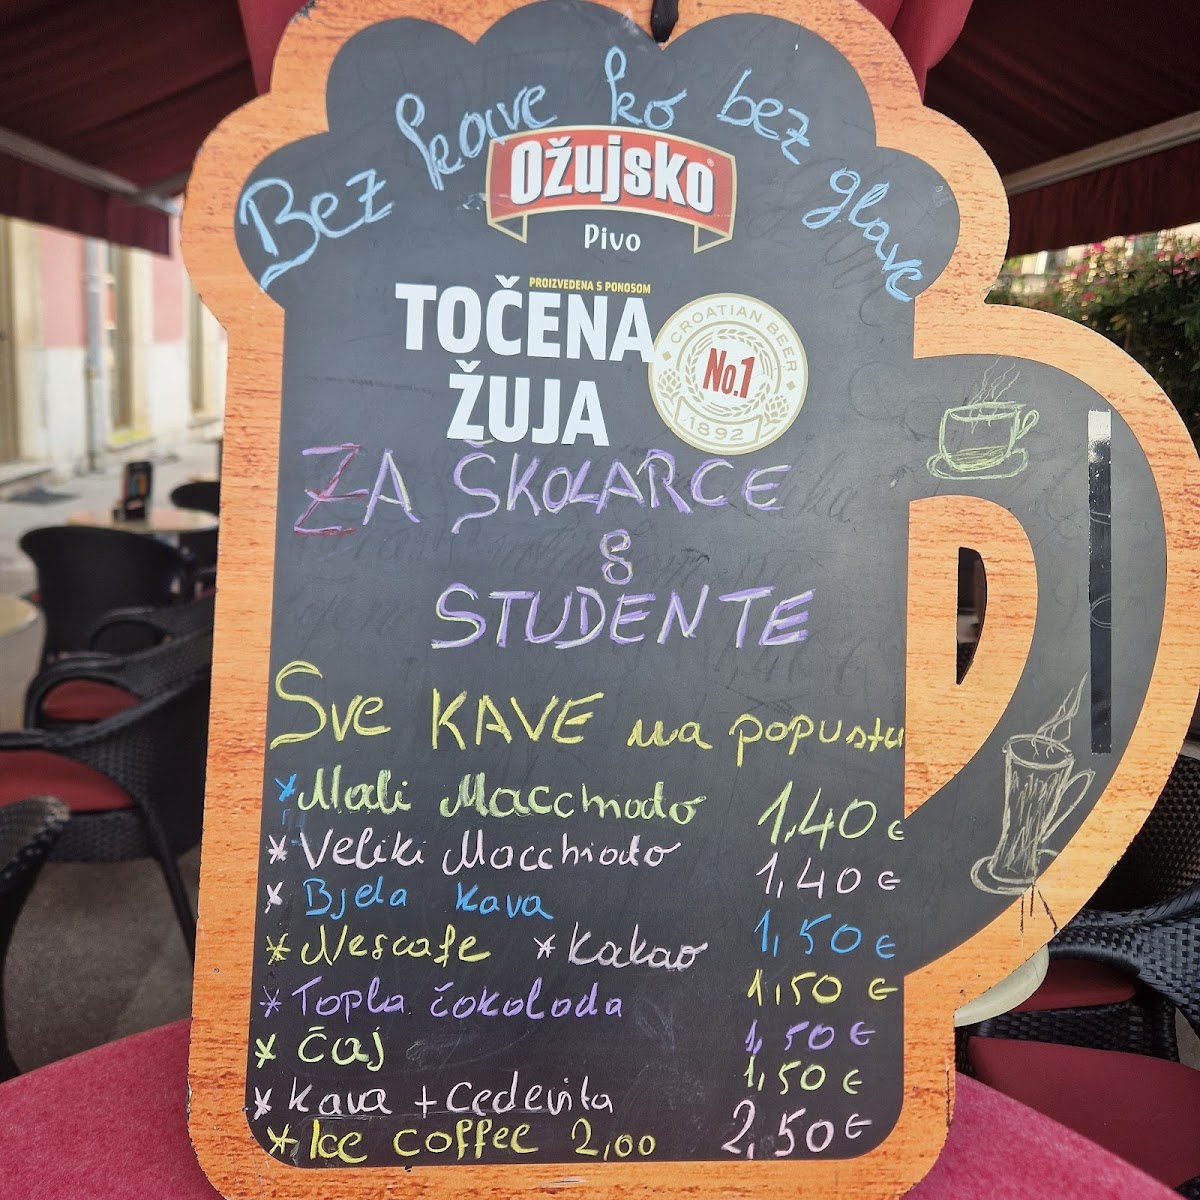 Bez kave ko bez glave
Ožujsko
Pivo
PROIZVEDENA S PONOSOM
TOČENA
ŽUJA
CROATIAN BEER
No.1
1892
ZA ŠKOLARCE
&
STUDENTE
Sve KAVE na popustu
*Mali Macchiado 1,40 €
*Veliki Macchiato 1,40 €
* Bjela kava 1,50 €
*Nescafe *Kakao 1,50 €
*Topla čokolada 1,50 €
* Čaj 1,50 €
* Kava + Cedevita 2,50 €
*Ice coffee 2,00